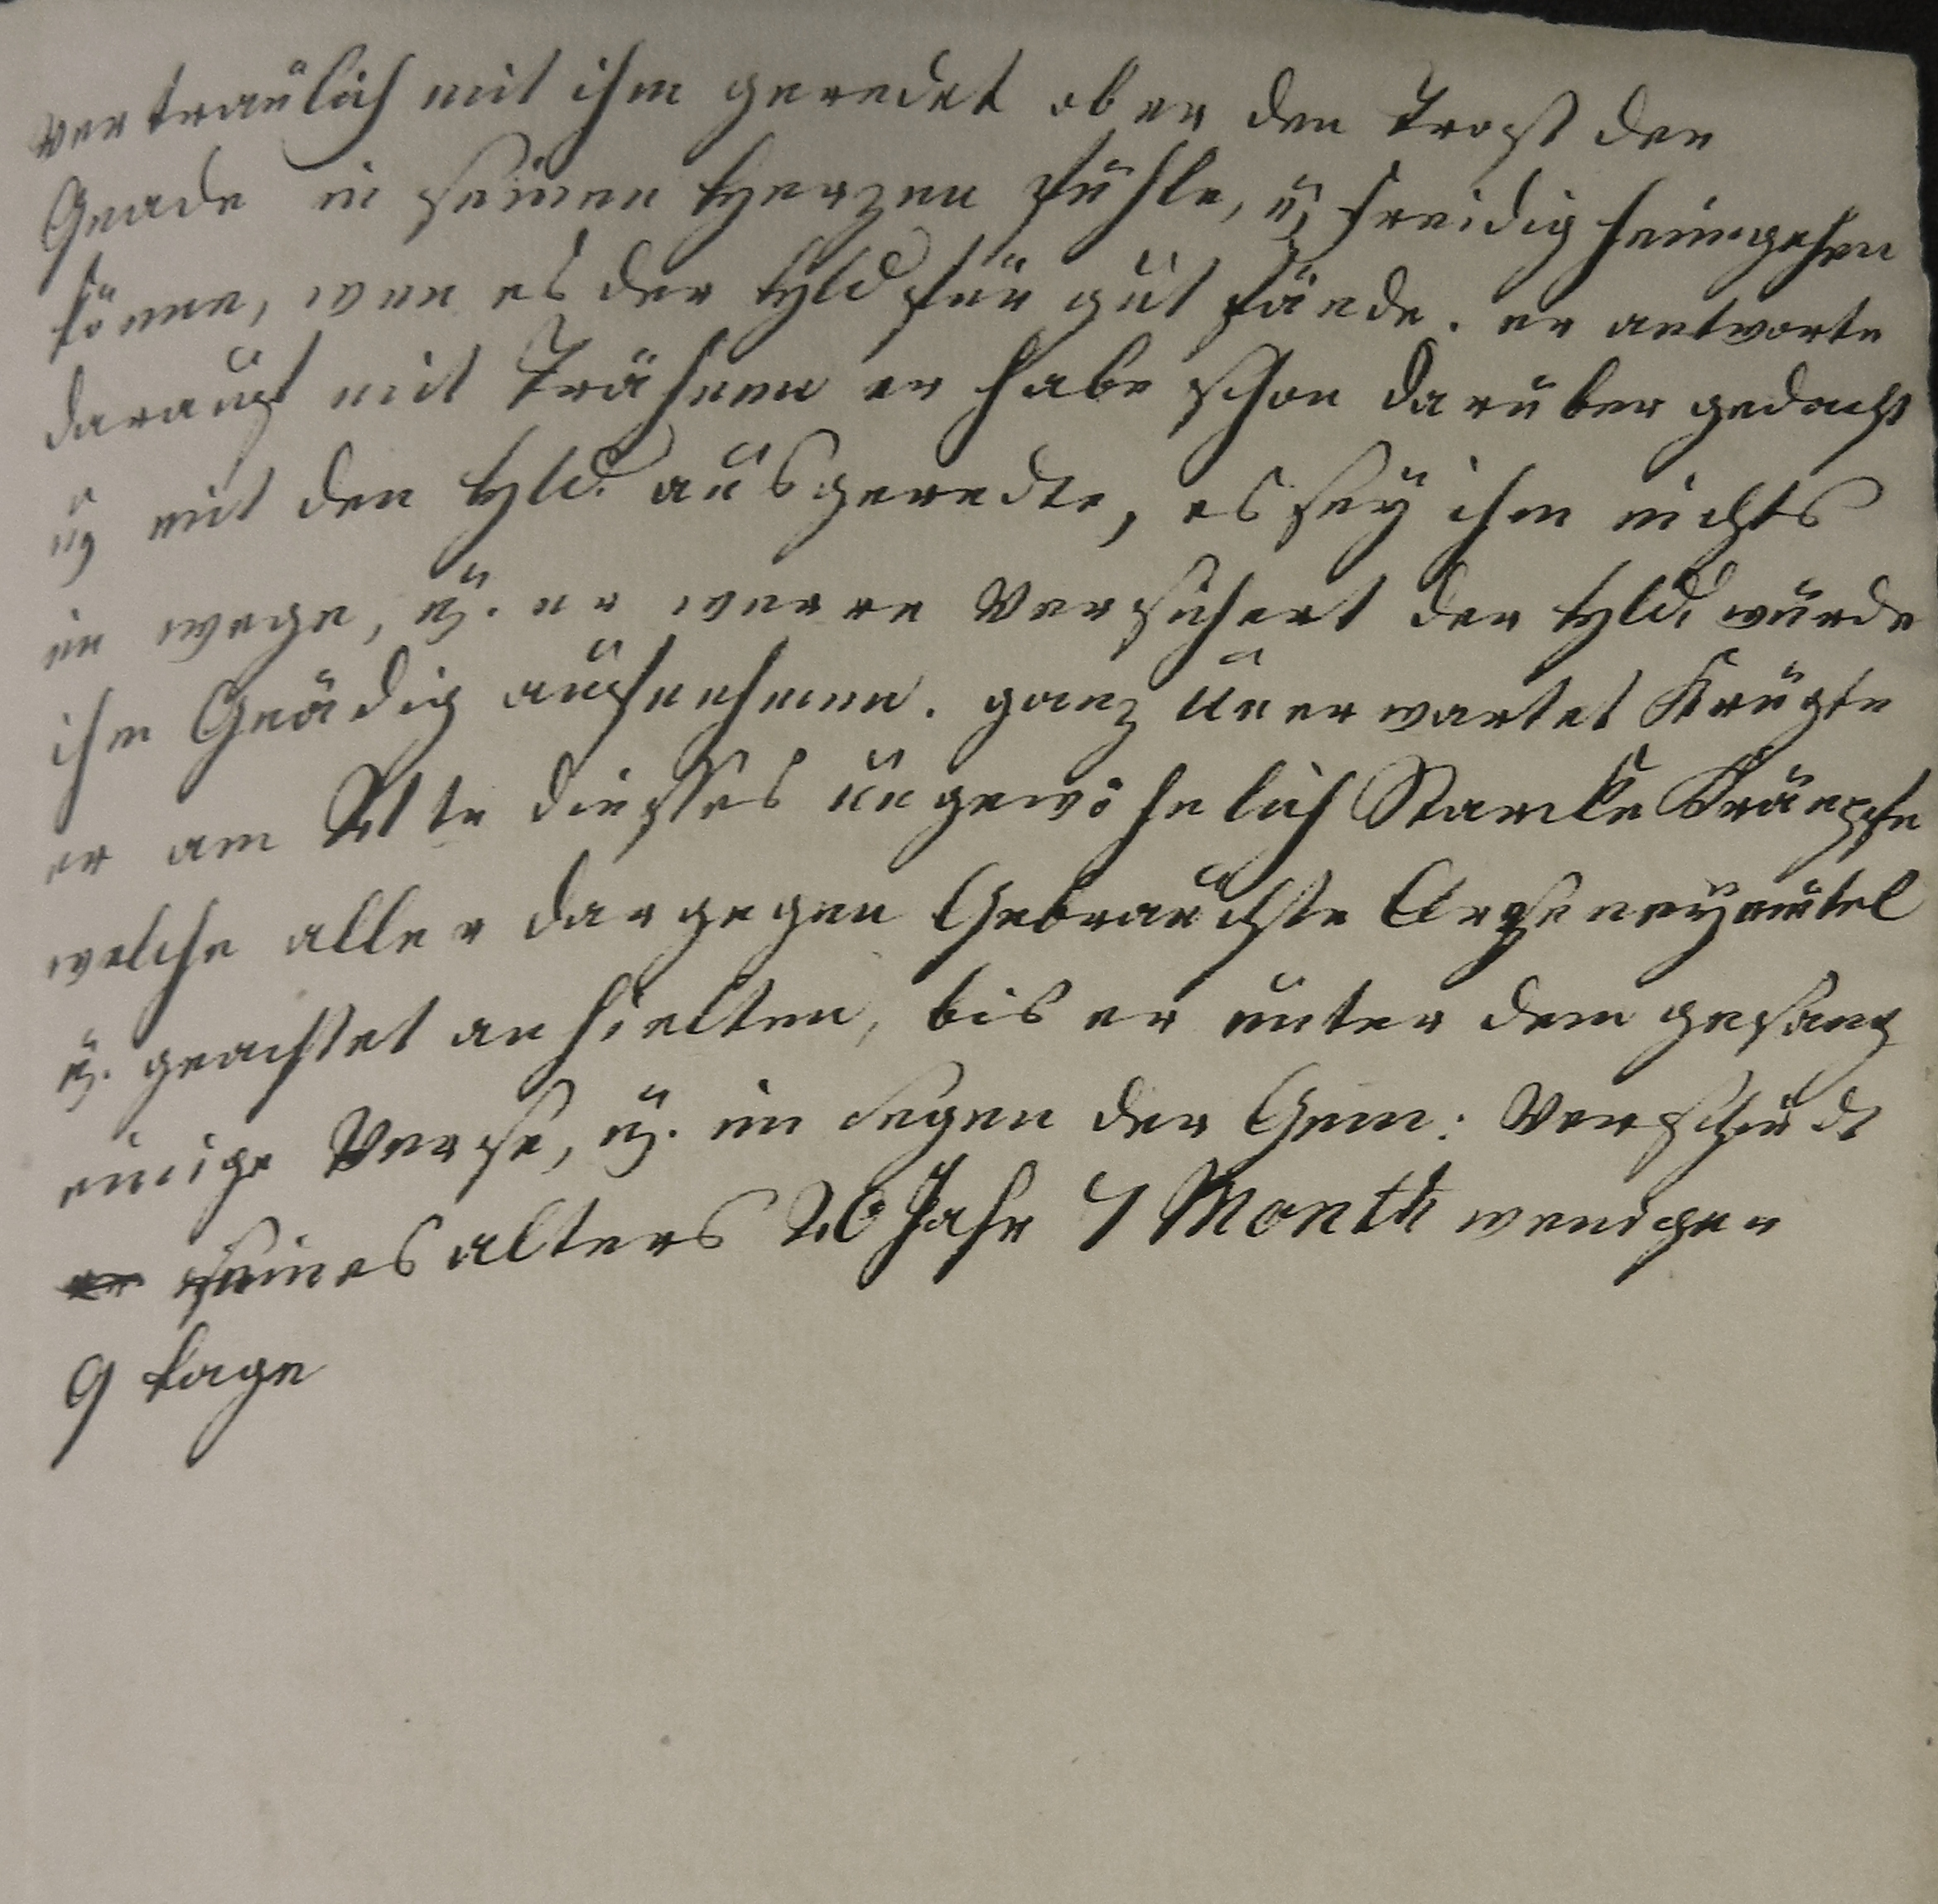 vertraulich mit ihm geredet ob er den Trost der
Gnade in seinen Herzen fühle, u. freidig heimgehen
könne, wen es der Hld für gut fände. er antworte
darauf mit Trähnen er habe schon darüber gedacht
u. mit den Hld. ausgeredte, es sey ihm nichts
im wege, u. er werre Versichert der Hld. würde
ihn Gnädig aufnehmen. ganz unerwartet Krigte
er am 21te diesses ungewöhnlich Starcke Krämpfe
welche aller dargegen Gebrauchte Arzeneymittel
u. geachtet anhielten, bis er unter dem gesang
einige Verse, u. im segen der Gem: Verschiedt
seines alters 26 Jahr 4 Month weniger
9 tage